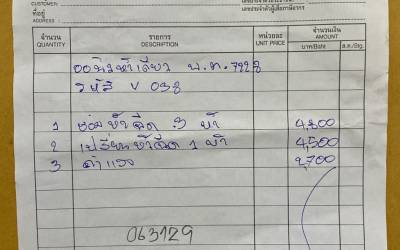 CUSTOMER
ที่อยู่
เลขประจำตัวผู้เสียภาษีอากร
จำนวน รายการ หน่วยละ จำนวนเงิน
QUANTITY DESCRIPTION UNIT PRICE AMOUNT
บาท/Baht ส.ต./Stg.
พ.ท. 7828
รหัส V 038
1 ซ่อมหัวฉีด 3 หัว 4,800
2 เปลี่ยนหัวฉีด 1 หัว 4,500
3 ค่าแรง 2,700
063129